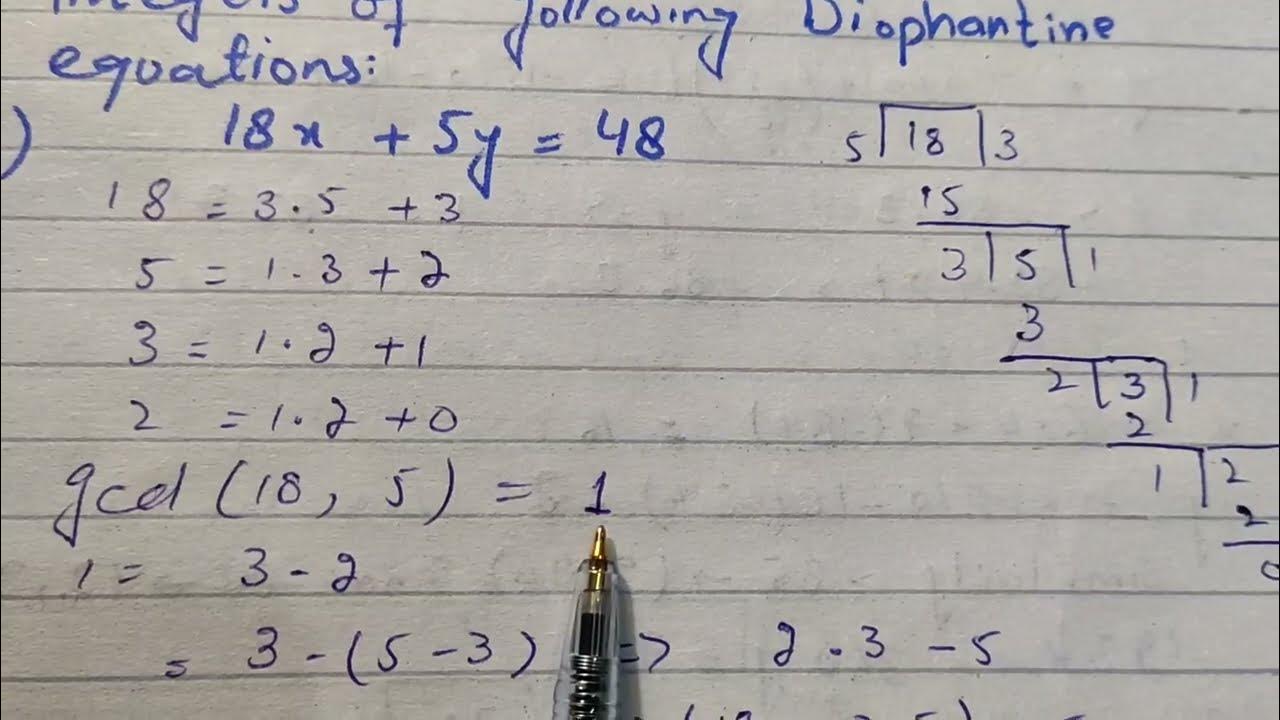 of following Diophantine
equations:
) 18x + 5y = 48
18 = 3.5 + 3
5 = 1.3 + 2
3 = 1.2 + 1
2 = 1.2 + 0
gcd (18, 5) = 1
1 = 3 - 2
= 3 - (5 - 3) => 2.3 - 5
5 18 3
15
3 5 1
3
2 3 1
2
1 2
2
0